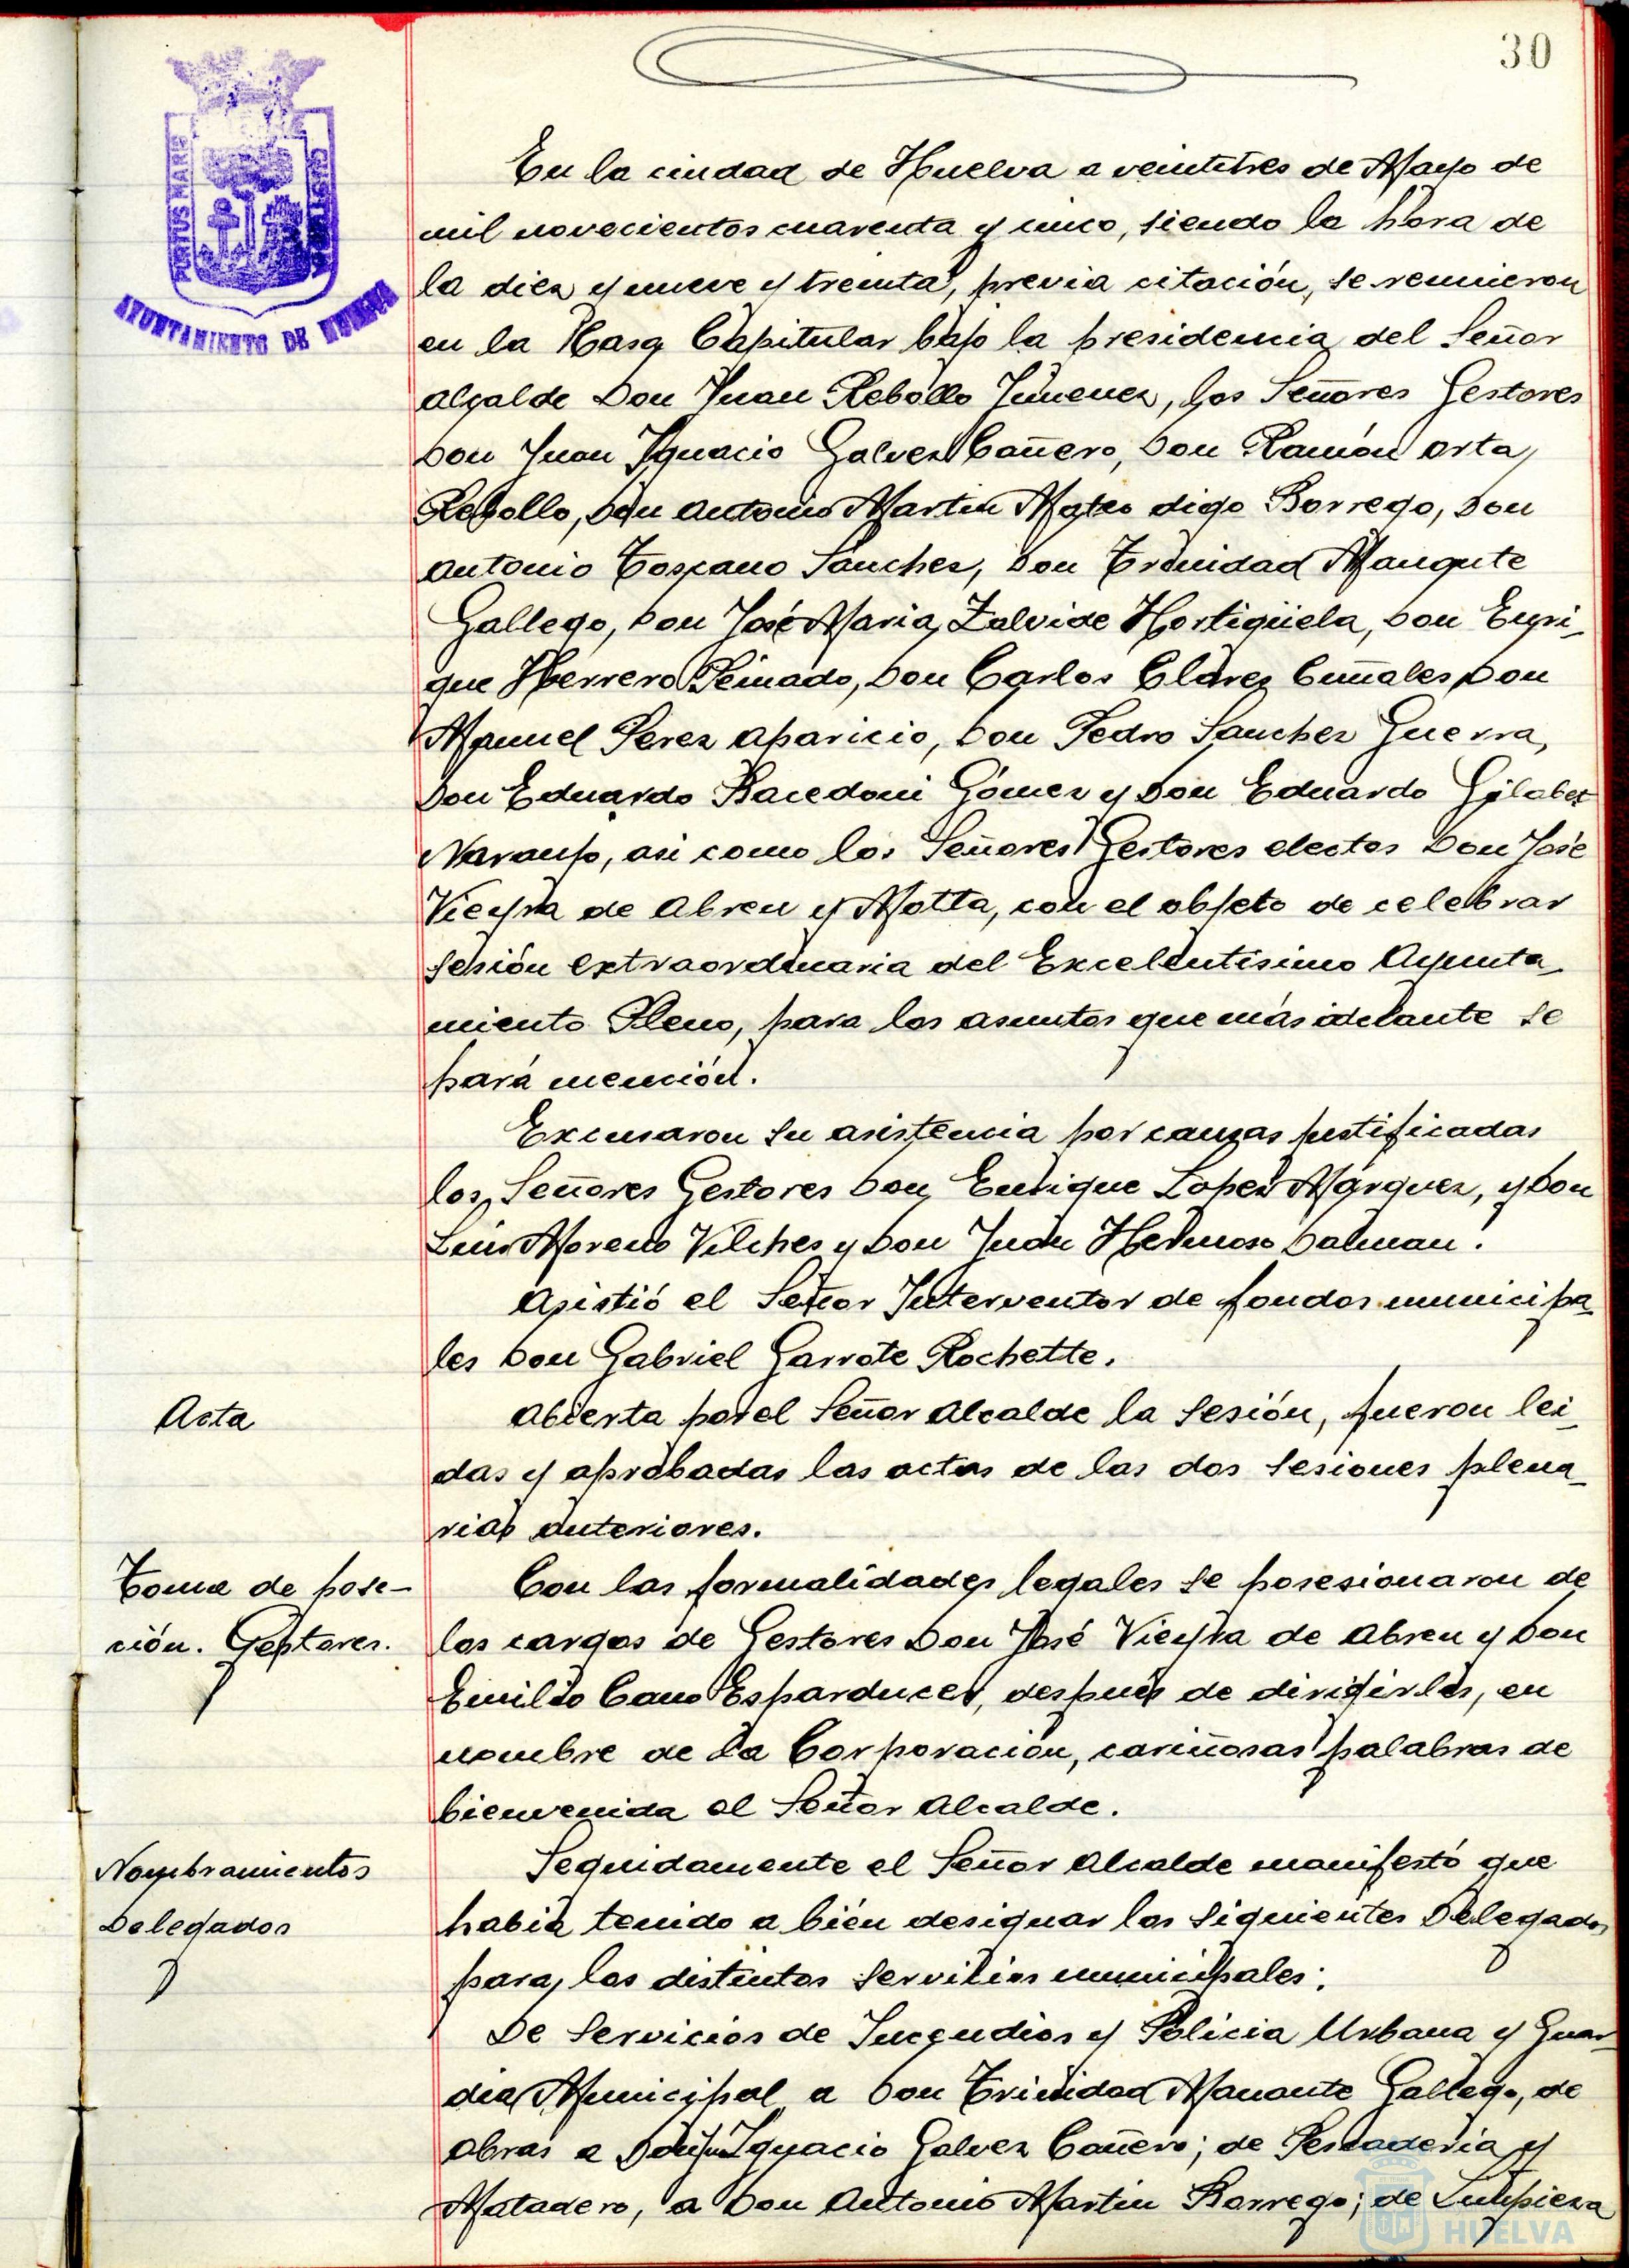 30
PORTUS MARIS
AYUNTAMIENTO DE HUELVA
En la ciudad de Huelva a veintitres de Mayo de
mil novecientos cuarenta y cinco, siendo la hora de
la diez y nueve y treinta, previa citación, se reunieron
en la Casa Capitular bajo la presidencia del Señor
Alcalde Don Juan Rebollo Jimenez, los Señores Gestores
Don Juan Ignacio Galvez Cañero, Don Ramón Orta
Rebollo, Don Antonio Martin Mateo digo Borrego, Don
Antonio Toscano Sanchez, Don Trinidad Mangute
Gallego, Don José Maria Zalvide Hortigüela, Don Enri-
que Herrero Peinado, Don Carlos Clarez Cuñales, Don
Manuel Perez Aparicio, Don Pedro Sanchez Guerra,
Don Eduardo Racedoni Gómez y Don Eduardo Gilabet
Naranjo, asi como los Señores Gestores electos Don José
Vieyra de Abreu y Motta, con el objeto de celebrar
sesión extraordinaria del Excelentisimo Ayunta-
miento Pleno, para los asuntos que más adelante se
hará mención.
Excusaron su asistencia por causas justificadas
los Señores Gestores Don Enrique Lopez Márquez, y Don
Luis Moreno Vilches y Don Juan Hermoso Dalman.
Asistió el Señor Interventor de fondos municipa-
les Don Gabriel Garrote Rochette.
Acta
Abierta por el Señor Alcalde la sesión, fueron lei-
das y aprobadas las actas de las dos sesiones plena-
rias anteriores.
Toma de pose-
ción. Gestores.
Con las formalidades legales se posesionaron de
los cargos de Gestores Don José Vieyra de Abreu y Don
Emilio Cano Esparducer, después de dirigirles, en
nombre de la Corporación, cariñosas palabras de
bienvenida el Señor Alcalde.
Nombramientos
Delegados
Seguidamente el Señor Alcalde manifestó que
habia tenido a bién designar los siguientes Delegados
para los distintos servicios municipales:
De Servicios de Incendios y Policia Urbana y Guar-
dia Municipal a Don Trinidad Manante Gallego, de
Obras a Ignacio Galvez Cañero; de Pescaderia y
Matadero, a Don Antonio Martin Borrego; de Limpieza
HUELVA